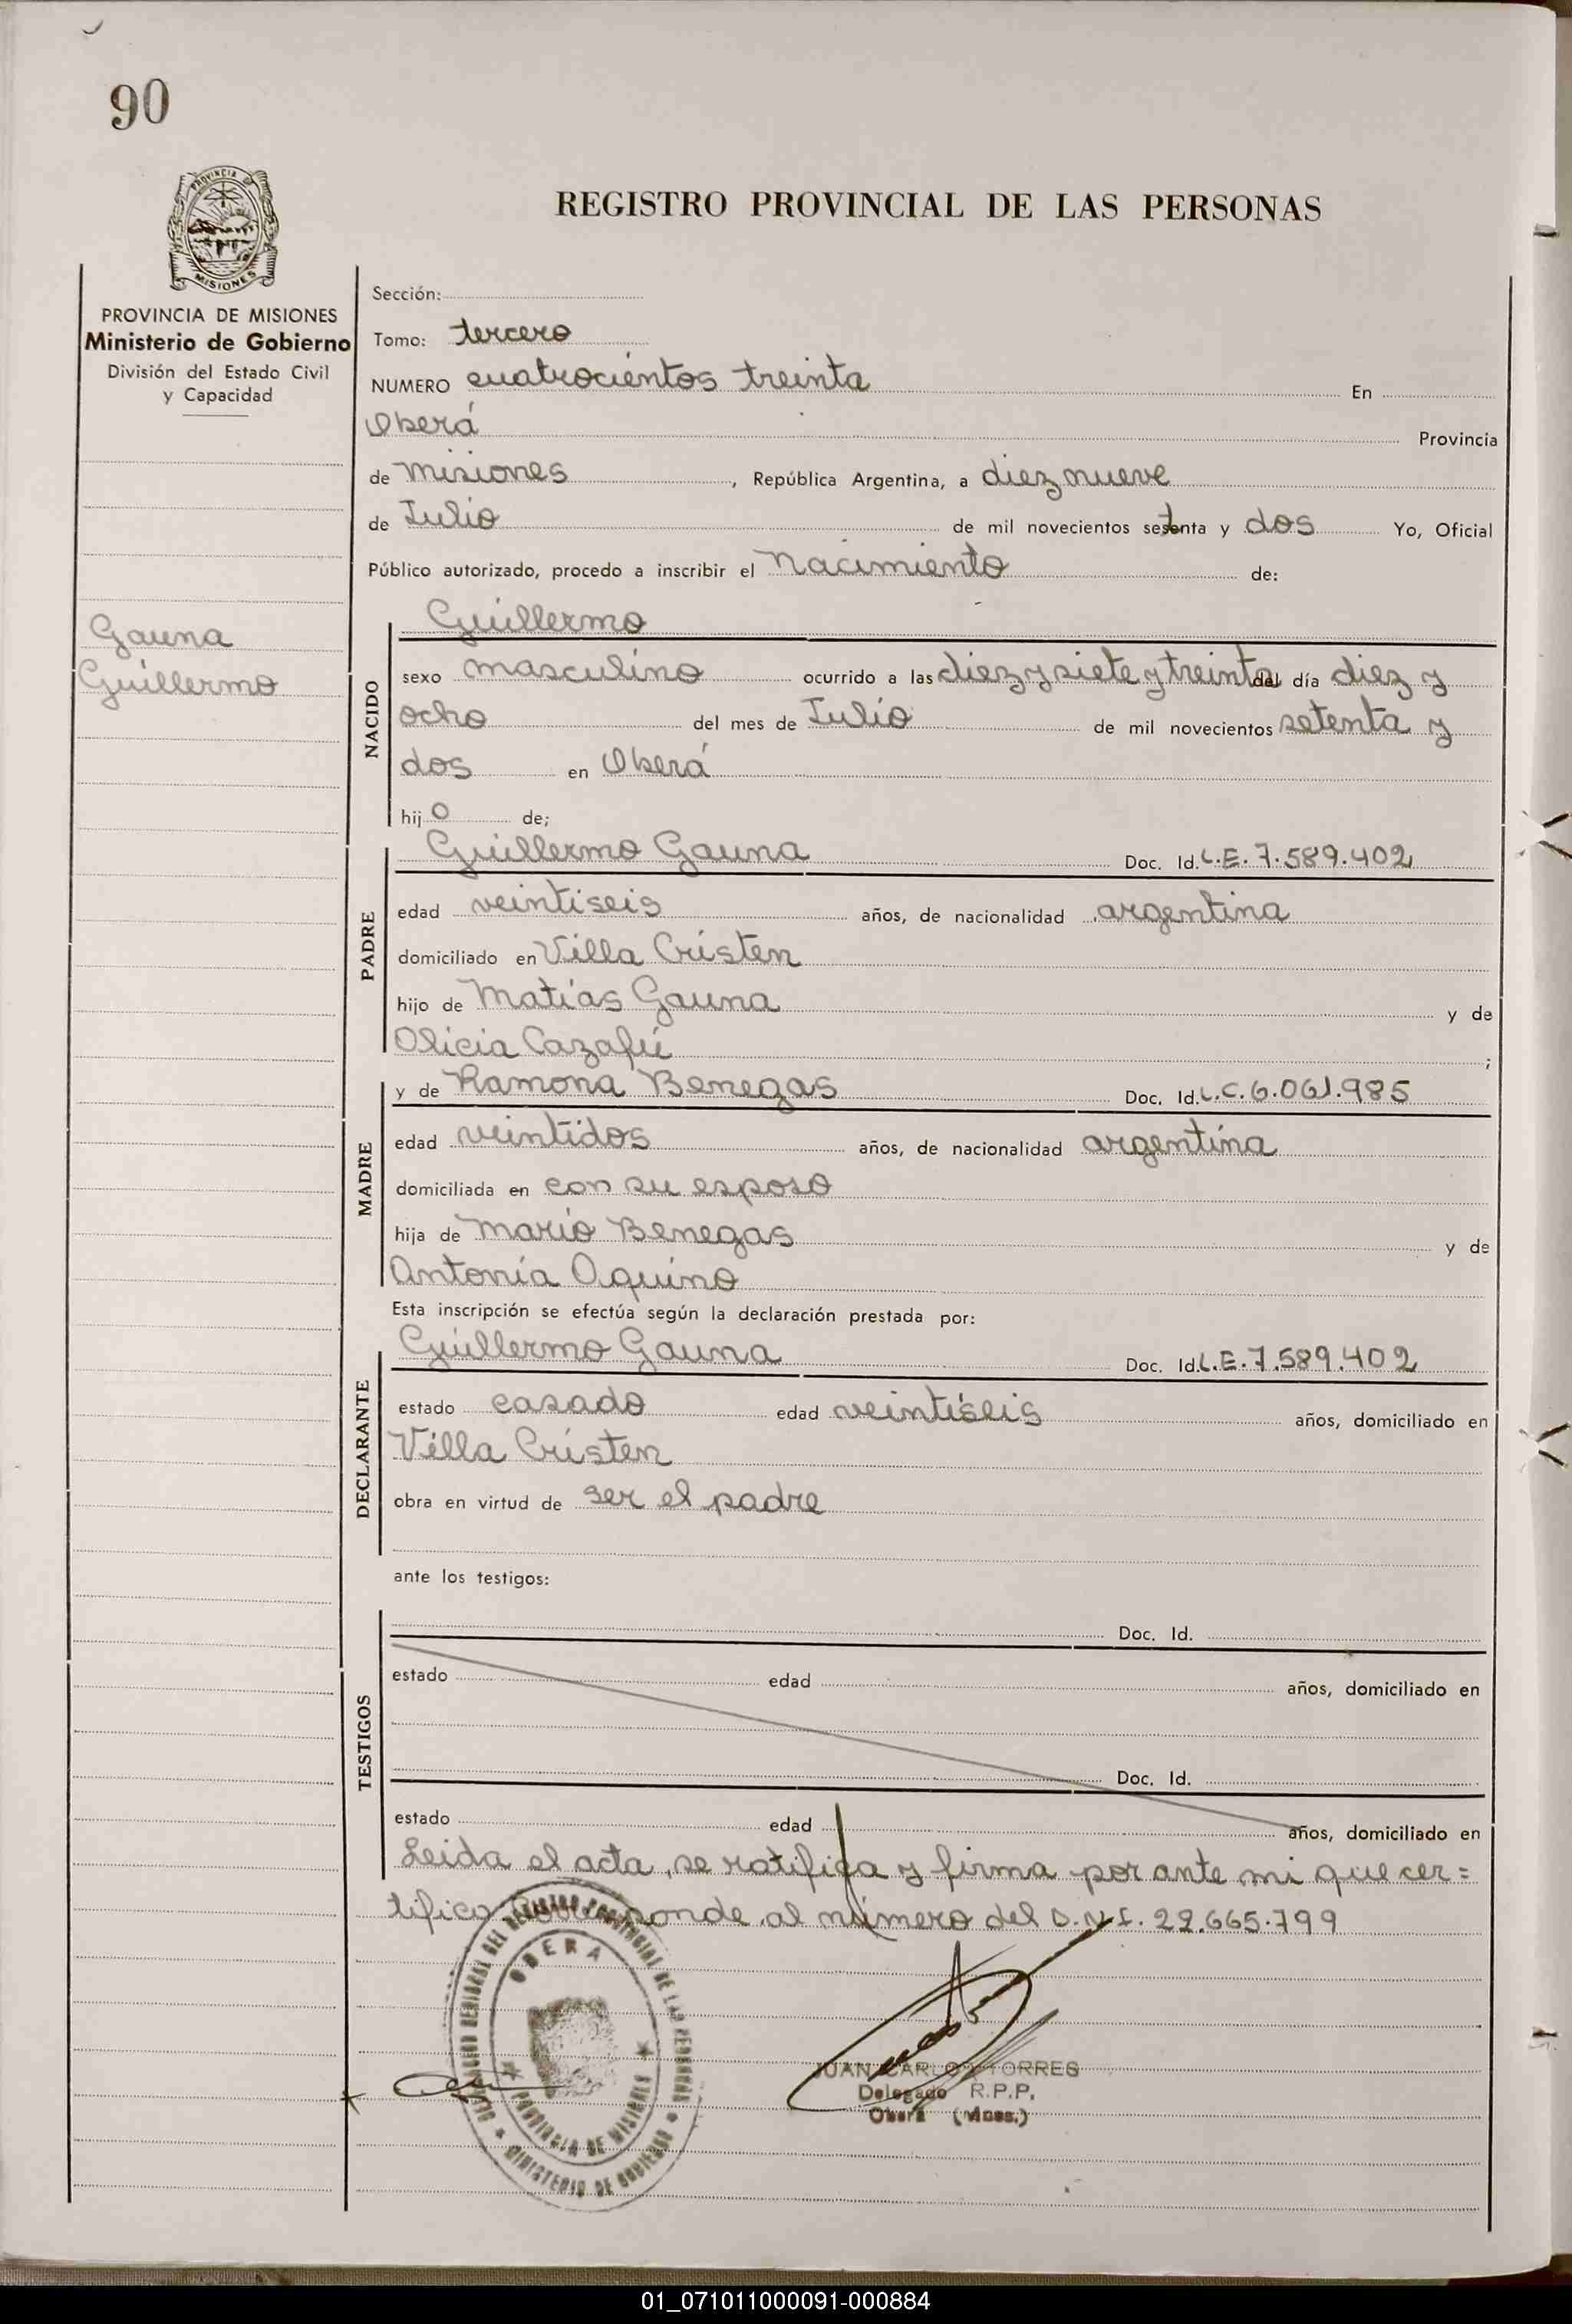 90
PROVINCIA
MISIONES
PROVINCIA DE MISIONES
Ministerio de Gobierno
División del Estado Civil
y Capacidad
Gauna
Guillermo
REGISTRO PROVINCIAL DE LAS PERSONAS
Sección:
Tomo: tercero
NUMERO cuatrocientos treinta En
Oberá Provincia
de misiones, República Argentina, a diez nueve
de Julio de mil novecientos setenta y dos Yo, Oficial
Público autorizado, procedo a inscribir el nacimiento de:
NACIDO
Guillermo
sexo masculino ocurrido a las diez y siete y treinta del día diez y
ocho del mes de Julio de mil novecientos setenta y
dos en Oberá
hijo de;
PADRE
Guillermo Gauna Doc. Id. L.E. 7.589.402
edad veintiseis años, de nacionalidad argentina
domiciliado en Villa Cristen
hijo de Matías Gauna y de
Olicia Cazafú;
MADRE
y de Ramona Benegas Doc. Id. L.C. 6.061.985
edad veintidos años, de nacionalidad argentina
domiciliada en con su esposo
hija de Mario Benegas y de
Antonia Aquino
Esta inscripción se efectúa según la declaración prestada por:
DECLARANTE
Guillermo Gauna Doc. Id. L.E. 7.589.402
estado casado edad veintiseis años, domiciliado en
Villa Cristen
obra en virtud de ser el padre
ante los testigos:
TESTIGOS
Doc. Id.
estado edad años, domiciliado en
Doc. Id.
estado edad años, domiciliado en
Leida el acta, se ratifica y firma por ante mi que cer=
tifico Corresponde al número del D.N.I. 22.665.799
OBERA
PROVINCIA DE MISIONES
MINISTERIO DE GOBIERNO
REGISTRO PROVINCIAL DE LAS PERSONAS
JUAN CARLOS TORRES
Delegado R.P.P.
Oberá (Mnes.)
01_071011000091-000884